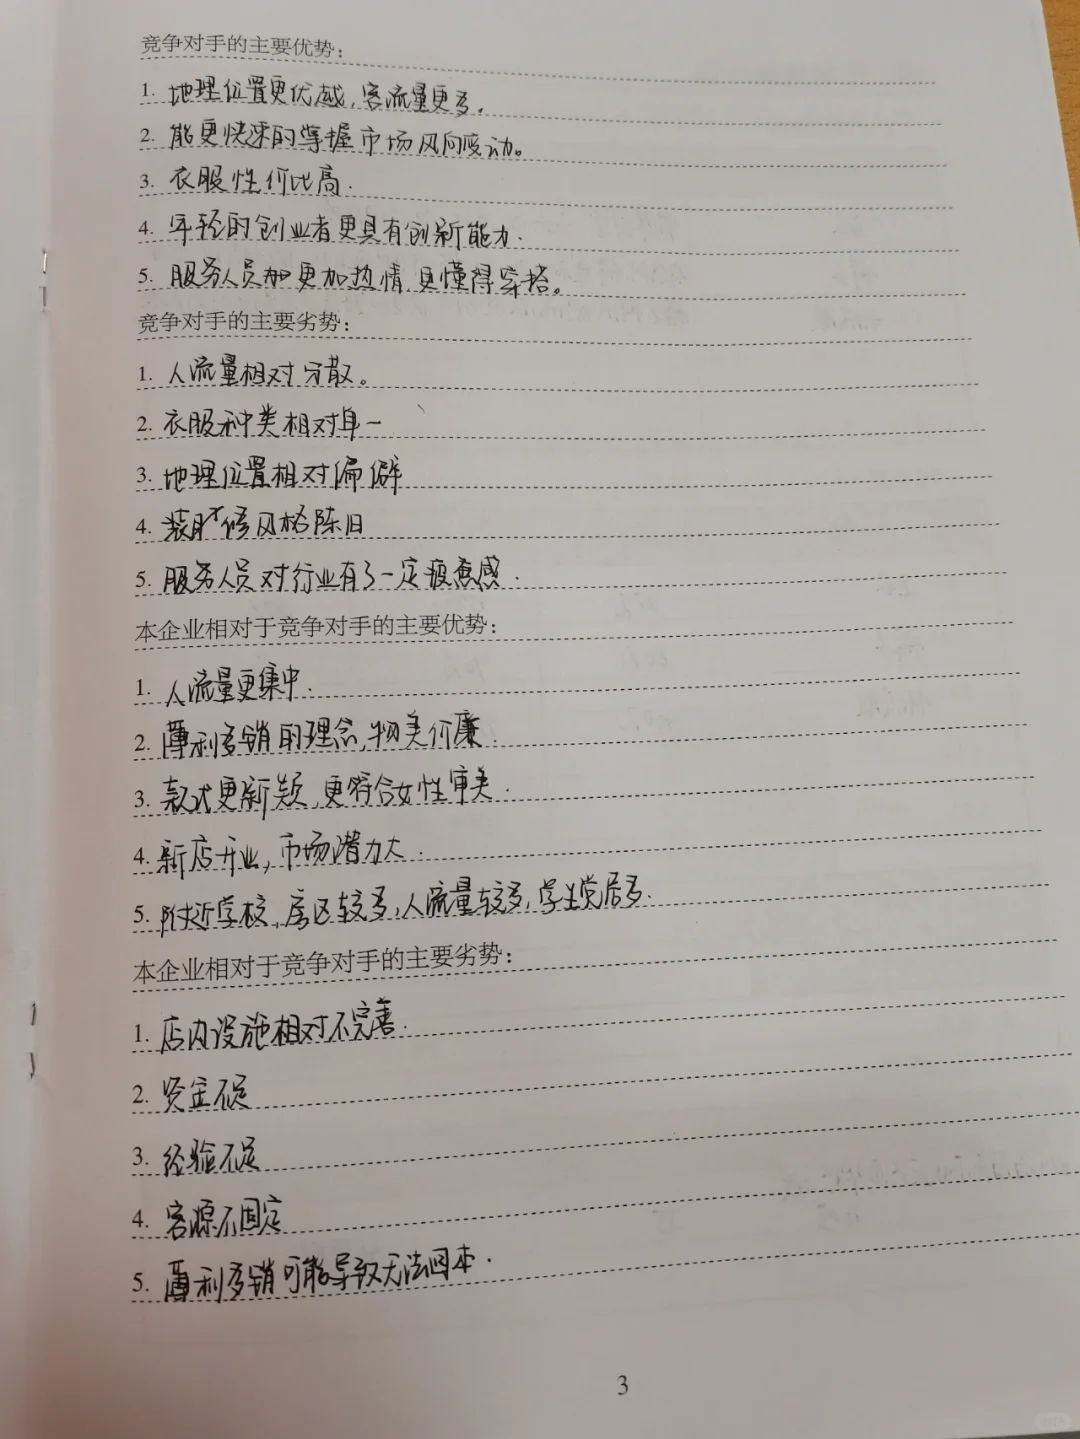 竞争对手的主要优势：
1. 地理位置更优越，客流量更多。
2. 能更快速的掌握市场风向变动。
3. 衣服性价比高.
4. 年轻的创业者更具有创新能力.
5. 服务人员更加热情更懂得穿搭。
竞争对手的主要劣势：
1. 人流量相对分散。
2. 衣服种类相对单一
3. 地理位置相对偏僻
4. 装修风格陈旧
5. 服务人员对行业有了一定疲惫感.
本企业相对于竞争对手的主要优势：
1. 人流量更集中.
2. 薄利多销的理念，物美价廉.
3. 款式更新颖，更符合女性审美.
4. 新店开业，市场潜力大.
5. 附近学校，居区较多，人流量较多，学生党居多.
本企业相对于竞争对手的主要劣势：
1. 店内设施相对不完善.
2. 资金不足
3. 经验不足
4. 客源不固定
5. 薄利多销可能导致无法回本.
3